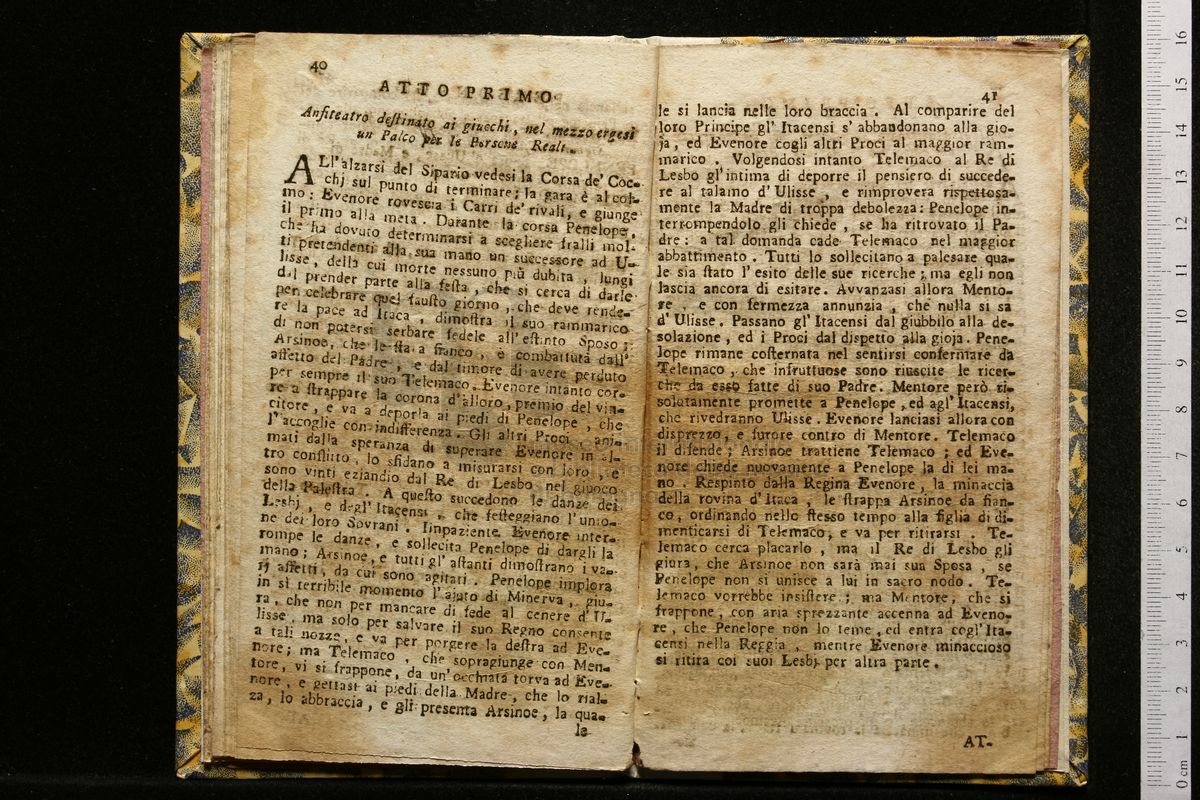 40
ATTO PRIMO
Anfiteatro destinato ai giuochi, nel mezzo ergesi
un Palco per le Persone Reali.
ALl'alzarsi del Sipario vedesi la Corsa de' Coc-
chj sul punto di terminare; la gara è al col-
mo: Evenore rovescia i Carri de' rivali, e giunge
il primo alla meta. Durante la corsa Penelope,
che ha dovuto determinarsi a scegliere fralli mol-
ti pretendenti alla sua mano un successore ad U-
lisse, della cui morte nessuno più dubita, lungi
dal prender parte alla festa, che si cerca di darle
per celebrare quel fausto giorno, che deve rende-
re la pace ad Itaca, dimostra il suo rammarico
di non potersi serbare fedele all'estinto Sposo;
Arsinoe, che le sta a fianco, è combattuta dall'
affetto del Padre, e dal timore di avere perduto
per sempre il suo Telemaco. Evenore intanto cor-
re a strappare la corona d'alloro, premio del vin-
citore, e va a deporla ai piedi di Penelope, che
l'accoglie con indifferenza. Gli altri Proci, ani-
mati dalla speranza di superare Evenore in al-
tro conflitto, lo sfidano a misurarsi con loro, e
sono vinti eziandio dal Re di Lesbo nel giuoco
della Palestra. A questo succedono le danze dei
Lesbj, e degl'Itacensi, che festeggiano l'unio-
ne dei loro Sovrani. Impaziente Evenore inter-
rompe le danze, e sollecita Penelope di dargli la
mano; Arsinoe, e tutti gl'astanti dimostrano i va-
rj affetti, da cui sono agitati. Penelope implora
in sì terribile momento l'ajuto di Minerva, giu-
ra, che non per mancare di fede al cenere d'U-
lisse, ma solo per salvare il suo Regno consente
a tali nozze, e va per porgere la destra ad Eve-
nore; ma Telemaco, che sopragiunge con Men-
tore, vi si frappone, da un'occhiata torva ad Eve-
nore, e gettasi ai piedi della Madre, che lo rial-
za, lo abbraccia, e gli presenta Arsinoe, la qua-
le
41
le si lancia nelle loro braccia. Al comparire del
loro Principe gl'Itacensi s'abbandonano alla gio-
ja, ed Evenore cogli altri Proci al maggior ram-
marico. Volgendosi intanto Telemaco al Re di
Lesbo gl'intima di deporre il pensiero di succede-
re al talamo d'Ulisse, e rimprovera rispettosa-
mente la Madre di troppa debolezza: Penelope in-
terrompendolo gli chiede, se ha ritrovato il Pa-
dre: a tal domanda cade Telemaco nel maggior
abbattimento. Tutti lo sollecitano a palesare qua-
le sia stato l'esito delle sue ricerche; ma egli non
lascia ancora di esitare. Avvanzasi allora Mento-
re, e con fermezza annunzia, che nulla si sa
d'Ulisse. Passano gl'Itacensi dal giubbilo alla de-
solazione, ed i Proci dal dispetto alla gioja. Pene-
lope rimane costernata nel sentirsi confermare da
Telemaco, che infruttuose sono riuscite le ricer-
che da esso fatte di suo Padre. Mentore però ri-
solutamente promette a Penelope, ed agl'Itacensi,
che rivedranno Ulisse. Evenore lanciasi allora con
disprezzo, e furore contro di Mentore. Telemaco
il difende; Arsinoe trattiene Telemaco; ed Eve-
nore chiede nuovamente a Penelope la di lei ma-
no. Respinto dalla Regina Evenore, la minaccia
della rovina d'Itaca, le strappa Arsinoe da fian-
co, ordinando nello stesso tempo alla figlia di di-
menticarsi di Telemaco, e va per ritirarsi. Te-
lemaco cerca placarlo, ma il Re di Lesbo gli
giura, che Arsinoe non sarà mai sua Sposa, se
Penelope non si unisce a lui in sacro nodo. Te-
lemaco vorrebbe insistere; ma Mentore, che si
frappone, con aria sprezzante accenna ad Eveno-
re, che Penelope non lo teme, ed entra cogl'Ita-
censi nella Reggia, mentre Evenore minaccioso
si ritira coi suoi Lesbj per altra parte.
AT-
0 cm 1 2 3 4 5 6 7 8 9 10 11 12 13 14 15 16